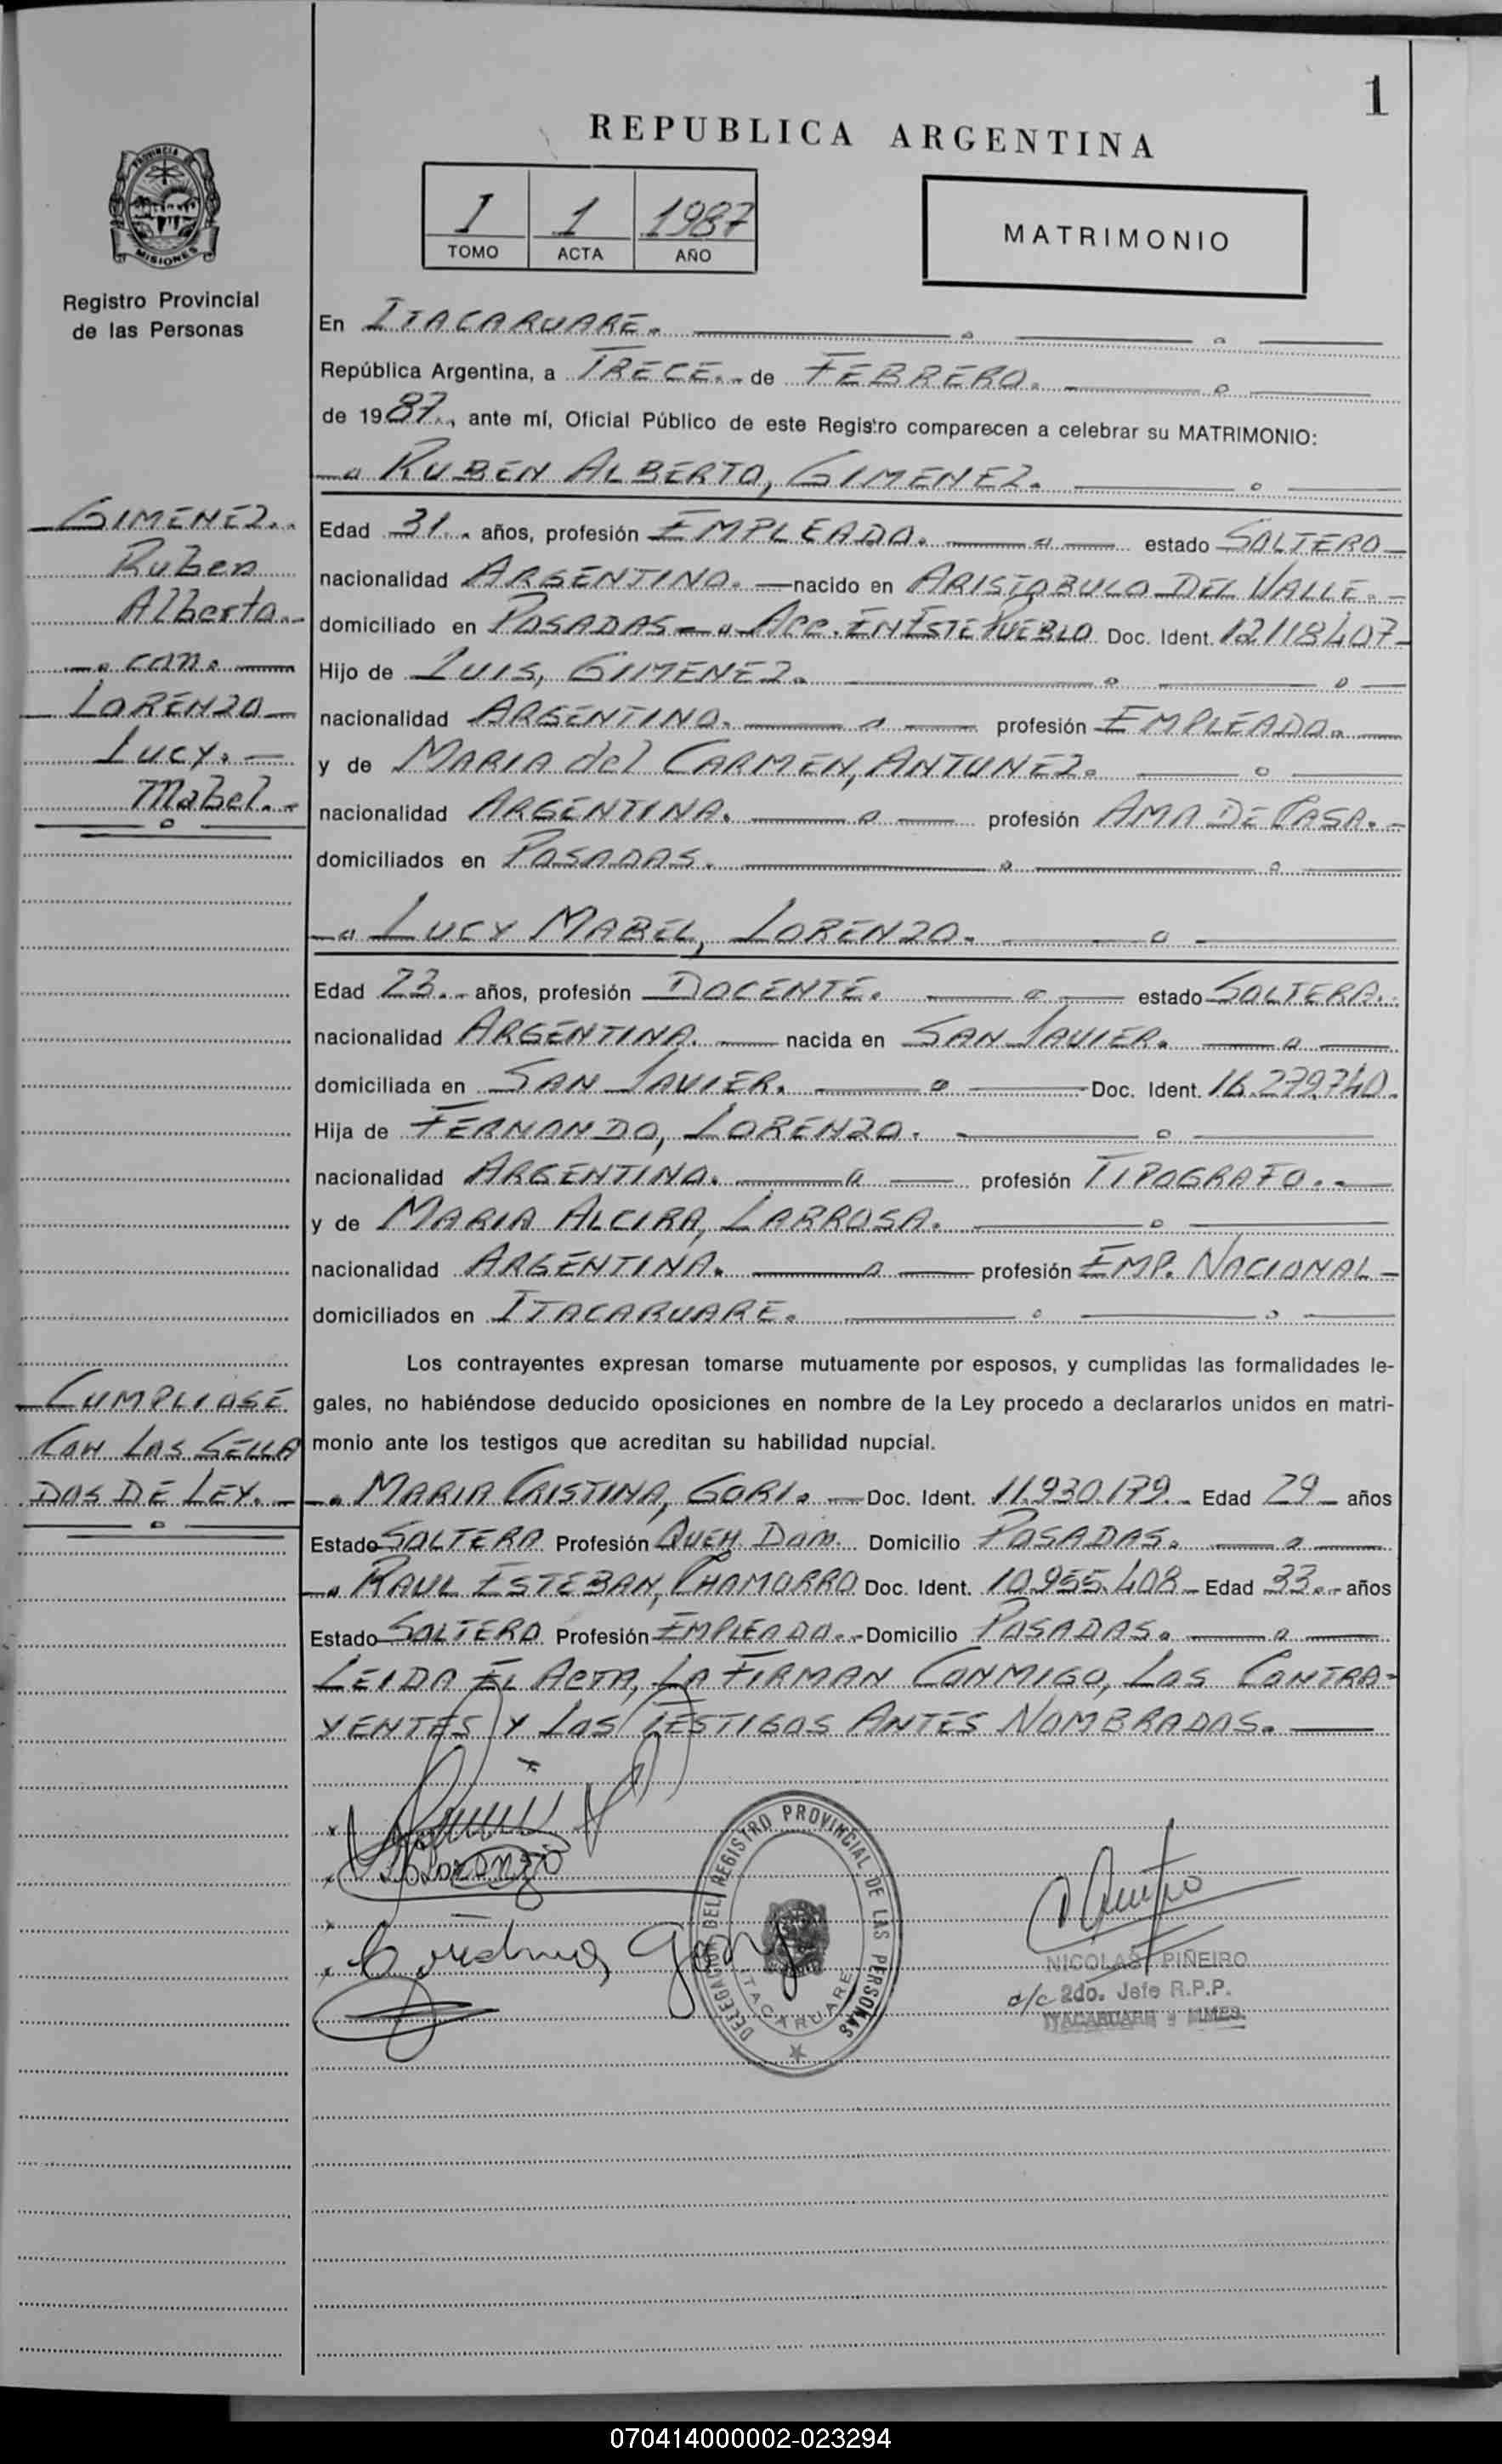 1
REPUBLICA ARGENTINA
I 1 1987
TOMO ACTA AÑO
MATRIMONIO
PROVINCIA DE
MISIONES
Registro Provincial
de las Personas
En ITACARUARE.
República Argentina, a TRECE. de FEBRERO.
de 1987., ante mí, Oficial Público de este Registro comparecen a celebrar su MATRIMONIO:
RUBEN ALBERTO, GIMENEZ.
GIMENEZ.
Ruben
Alberto.
con.
LORENZO
Lucy.
Mabel.
Edad 31. años, profesión EMPLEADO. estado SOLTERO
nacionalidad ARGENTINO. nacido en ARISTOBULO DEL VALLE.
domiciliado en POSADAS - Acc. EN ESTE PUEBLO Doc. Ident. 12118407
Hijo de LUIS, GIMENEZ.
nacionalidad ARGENTINO. profesión EMPLEADO.
y de MARIA del CARMEN, ANTUNEZ.
nacionalidad ARGENTINA. profesión AMA DE CASA.
domiciliados en POSADAS.
LUCY MABEL, LORENZO.
Edad 23. años, profesión DOCENTE. estado SOLTERA.
nacionalidad ARGENTINA. nacida en SAN JAVIER.
domiciliada en SAN JAVIER. Doc. Ident. 16.279.740.
Hija de FERNANDO, LORENZO.
nacionalidad ARGENTINO. profesión TIPOGRAFO.
y de MARIA ALCIRA, LARROSA.
nacionalidad ARGENTINA. profesión EMP. NACIONAL
domiciliados en ITACARUARE.
Los contrayentes expresan tomarse mutuamente por esposos, y cumplidas las formalidades le-
gales, no habiéndose deducido oposiciones en nombre de la Ley procedo a declararlos unidos en matri-
monio ante los testigos que acreditan su habilidad nupcial.
CUMPLIOSE
CON LOS SELLA
DOS DE LEY.
MARIA CRISTINA, GORI. Doc. Ident. 11.930.179. Edad 29 años
Estado SOLTERA Profesión QUEH. DOM. Domicilio POSADAS.
RAUL ESTEBAN, CHAMORRO Doc. Ident. 10.955.408 Edad 33. años
Estado SOLTERO Profesión EMPLEADO. Domicilio POSADAS.
LEIDA EL ACTA, LA FIRMAN CONMIGO, LOS CONTRA-
YENTES Y LOS TESTIGOS ANTES NOMBRADOS.
Lorenzo
Cristina Gori
DELEGACION DEL REGISTRO PROVINCIAL DE LAS PERSONAS
ITACARUARE
NICOLAS PIÑEIRO
a/c 2do. Jefe R.P.P.
ITACARUARE
070414000002-023294